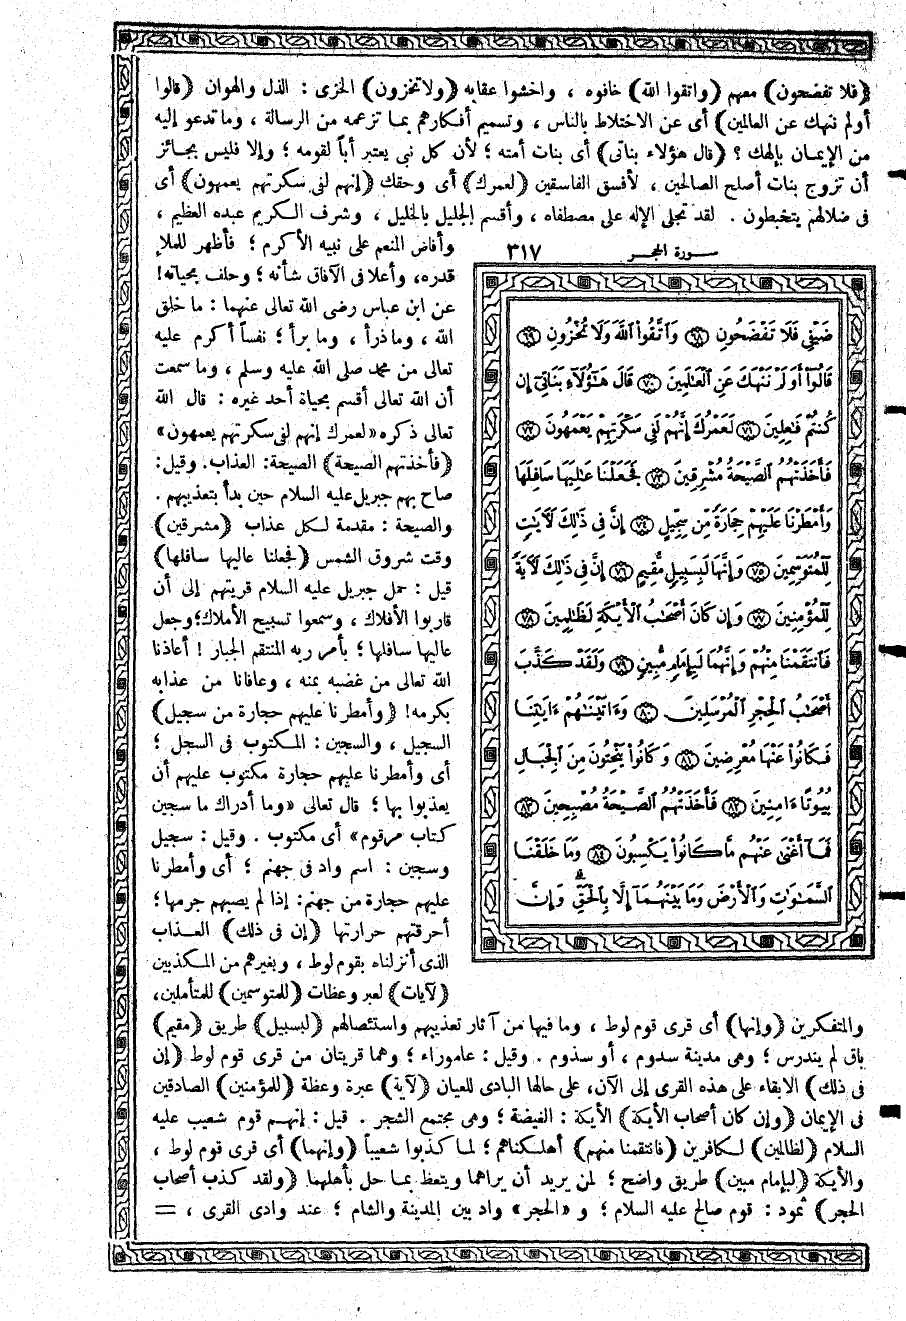 (فلا تفضحون) معهم (واتقوا الله) خافوه ، واخشوا عقابه (ولا تخزون) الخزى : الذل والهوان (قالوا
أولم ننهك عن العالمين) أى عن الاختلاط بالناس ، وتسميم أفكارهم بما تزعمه من الرسالة ، وما تدعو إليه
من الإيمان بإلهك ؟ (قال هؤلاء بناتى) أى بنات أمته ؛ لأن كل نبى يعتبر أباً لقومه ؛ وإلا فليس بجائز
أن تزوج بنات أصلح الصالحين ، لأفسق الفاسقين (لعمرك) أى وحقك (إنهم لفى سكرتهم يعمهون) أى
فى ضلالهم يتخبطون . لقد تجلى الإله على مصطفاه ، وأقسم الجليل بالخليل ، وشرف الكريم عبده العظيم ،
وأفاض المنعم على نبيه الأكرم ؛ فأظهر للملإ
قدره، وأعلا فى الآفاق شأنه ؛ وحلف بحياته!
عن ابن عباس رضى الله تعالى عنهما : ما خلق
الله ، وما ذرأ ، وما برأ ؛ نفساً أكرم عليه
تعالى من محمد صلى الله عليه وسلم ، وما سمعت
أن الله تعالى أقسم بحياة أحد غيره : قال الله
تعالى ذكره «لعمرك إنهم لفى سكرتهم يعمهون»
(فأخذتهم الصيحة) الصيحة: العذاب. وقيل:
صاح بهم جبريل عليه السلام حين بدأ بتعذيبهم .
والصيحة : مقدمة لكل عذاب (مشرقين)
وقت شروق الشمس (فجعلنا عاليها سافلها)
قيل : حمل جبريل عليه السلام قريتهم إلى أن
قاربوا الأفلاك ، وسمعوا تسبيح الأملاك؛وجعل
عاليها سافلها ؛ بأمر ربه المنتقم الجبار ! أعاذنا
الله تعالى من غضبه بمنه ، وعافانا من عذابه
بكرمه! (وأمطرنا عليهم حجارة من سجيل)
السجيل ، والسجين : المكتوب فى السجل ؛
أى وأمطرنا عليهم حجارة مكتوب عليهم أن
يعذبوا بها ؛ قال تعالى «وما أدراك ما سجين
كتاب مرقوم» أى مكتوب . وقيل : سجيل
وسجين : اسم واد فى جهنم ؛ أى وأمطرنا
عليهم حجارة من جهنم: إذا لم يصبهم جرمها؛
أحرقتهم حرارتها (إن فى ذلك) العذاب
الذى أنزلناه بقوم لوط ، وبغيرهم من المكذبين
(لآيات) لعبر وعظات (للمتوسمين) للمتأملين،
سورة الحجر ٣١٧
ضَيْفِى فَلَا تَفْضَحُونِ ٦٨ وَٱتَّقُوا۟ ٱللَّهَ وَلَا تُخْزُونِ ٦٩
قَالُوٓا۟ أَوَلَمْ نَنْهَكَ عَنِ ٱلْعَٰلَمِينَ ٧٠ قَالَ هَٰٓؤُلَآءِ بَنَاتِىٓ إِن
كُنتُمْ فَٰعِلِينَ ٧١ لَعَمْرُكَ إِنَّهُمْ لَفِى سَكْرَتِهِمْ يَعْمَهُونَ ٧٢
فَأَخَذَتْهُمُ ٱلصَّيْحَةُ مُشْرِقِينَ ٧٣ فَجَعَلْنَا عَٰلِيَهَا سَافِلَهَا
وَأَمْطَرْنَا عَلَيْهِمْ حِجَارَةً مِّن سِجِّيلٍ ٧٤ إِنَّ فِى ذَٰلِكَ لَآيَٰتٍ
لِّلْمُتَوَسِّمِينَ ٧٥ وَإِنَّهَا لَبِسَبِيلٍ مُّقِيمٍ ٧٦ إِنَّ فِى ذَٰلِكَ لَآيَةً
لِّلْمُؤْمِنِينَ ٧٧ وَإِن كَانَ أَصْحَٰبُ ٱلْأَيْكَةِ لَظَٰلِمِينَ ٧٨
فَٱنتَقَمْنَا مِنْهُمْ وَإِنَّهُمَا لَبِإِمَامٍ مُّبِينٍ ٧٩ وَلَقَدْ كَذَّبَ
أَصْحَٰبُ ٱلْحِجْرِ ٱلْمُرْسَلِينَ ٨٠ وَءَاتَيْنَٰهُمْ ءَايَٰتِنَا
فَكَانُوا۟ عَنْهَا مُعْرِضِينَ ٨١ وَكَانُوا۟ يَنْحِتُونَ مِنَ ٱلْجِبَالِ
بُيُوتًا ءَامِنِينَ ٨٢ فَأَخَذَتْهُمُ ٱلصَّيْحَةُ مُصْبِحِينَ ٨٣
فَمَآ أَغْنَىٰ عَنْهُم مَّا كَانُوا۟ يَكْسِبُونَ ٨٤ وَمَا خَلَقْنَا
ٱلسَّمَٰوَٰتِ وَٱلْأَرْضَ وَمَا بَيْنَهُمَآ إِلَّا بِٱلْحَقِّ وَإِنَّ
والمتفكرين (وإنها) أى قرى قوم لوط ، وما فيها من آثار تعذيبهم واستئصالهم (لبسبيل) طريق (مقيم)
باق لم يندرس ؛ وهى مدينة سدوم ، أو سذوم . وقيل : عاموراء ؛ وهما قريتان من قرى قوم لوط (إن
فى ذلك) الابقاء على هذه القرى إلى الآن، على حالها البادى للعيان (لآية) عبرة وعظة (للمؤمنين) الصادقين
فى الإيمان (وإن كان أصحاب الأيكة) الأيكة : الغيضة ؛ وهى مجتمع الشجر . قيل : إنهم قوم شعيب عليه
السلام (لظالمين) لكافرين (فانتقمنا منهم) أهلكناهم ؛ لما كذبوا شعيباً (وإنهما) أى قرى قوم لوط ،
والأيكة (لبإمام مبين) طريق واضح ؛ لمن يريد أن يراهما ويتعظ بما حل بأهلهما (ولقد كذب أصحاب
الحجر) ثمود : قوم صالح عليه السلام ؛ و «الحجر» واد بين المدينة والشام ؛ عند وادى القرى ، =